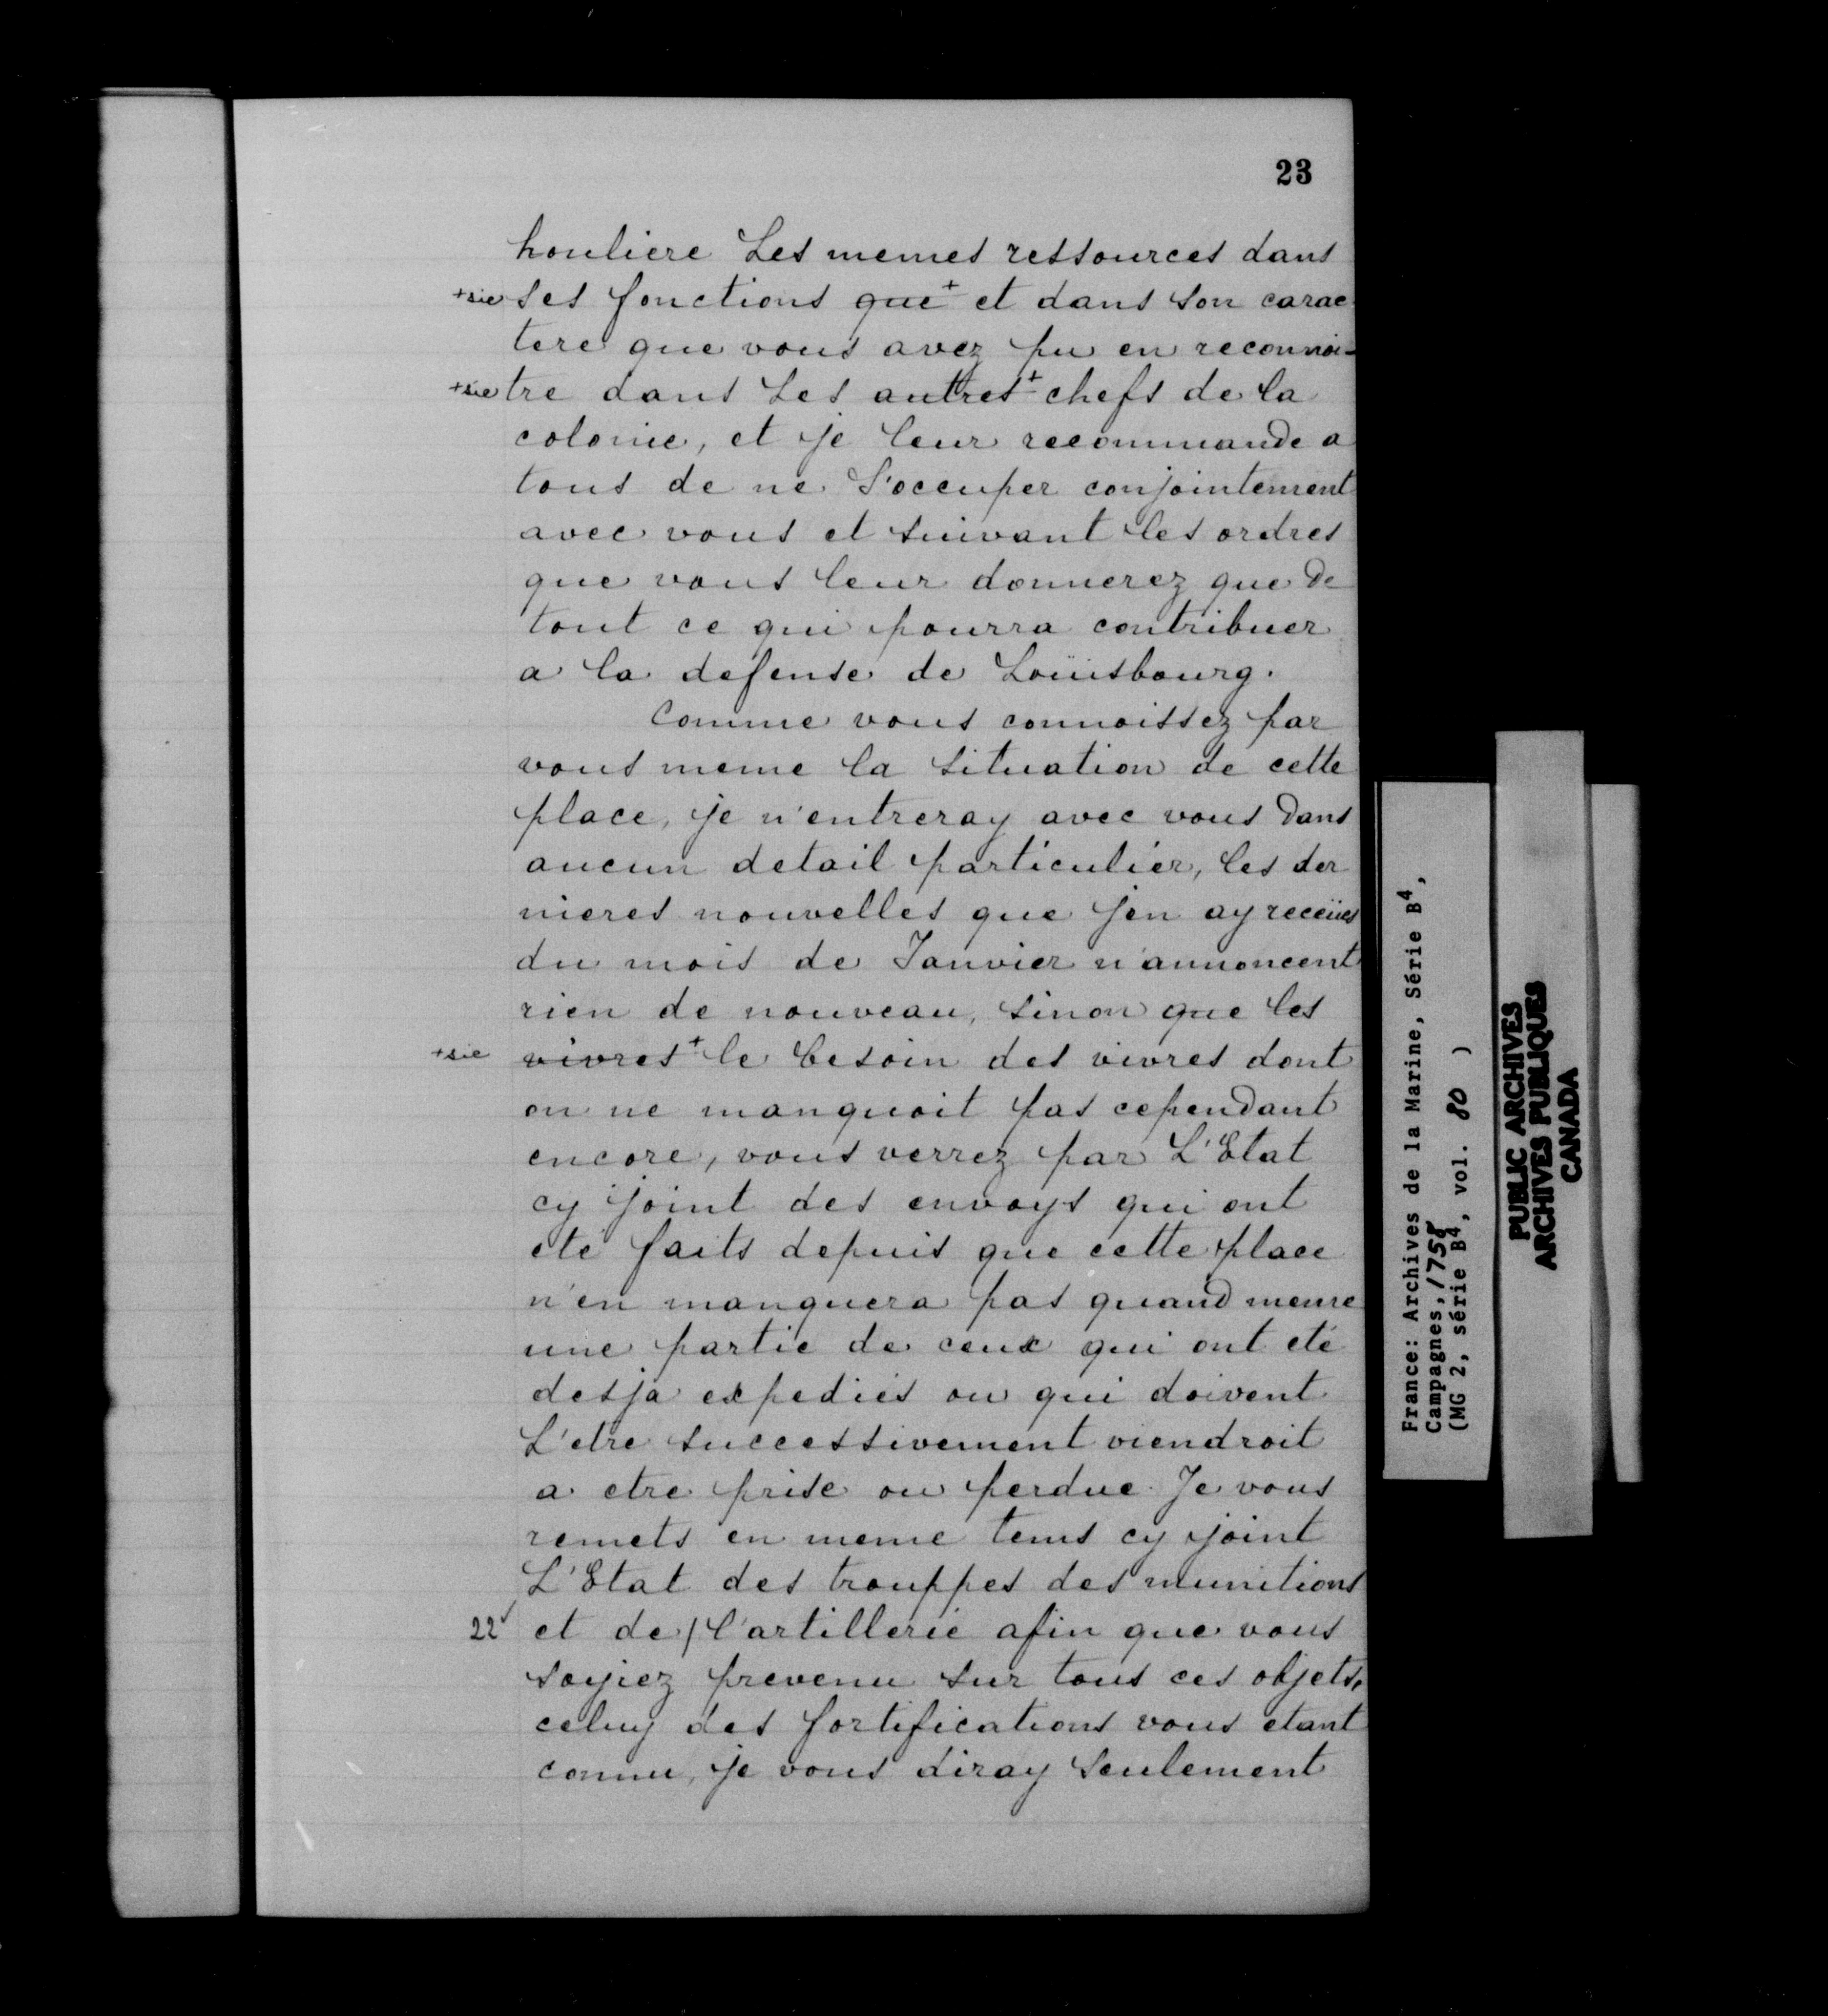 23
houliere Les memes ressources dans
+sic ses fonctions que+ et dans son carac
tere que vous avez pu en reconnoi-
+sic tre dans Les autres+ chefs de la
colonie, et je leur recommande a
tous de ne S'occuper conjointement
avec vous et suivant les ordres
que vous leur donnerez que de
tout ce qui pourra contribuer
a la defense de Loüisbourg.
Comme vous connoissez par
vous meme la situation de cette
place, je n'entreray avec vous dans
aucun detail particulier, les der
nieres nouvelles que j'en ay receües
du mois de Janvier n'annoncent
rien de nouveau, sinon que les
+sic vivres+ le besoin des vivres dont
on ne manquoit pas cependant
encore, vous verrez par L'Etat
cy joint des envoys qui ont
eté faits depuis que cette place
n'en manquera pas quand meme
une partie de ceux qui ont eté
desja expediés ou qui doivent
L'etre successivement viendroit
a etre prise ou perdue. Je vous
remets en meme tems cy joint
L'Etat des trouppes des munitions
22 et de / l'artillerie afin que vous
soyiez prevenu sur tous ces objets,
celuy des fortifications vous etant
connu, je vous diray seulement
France: Archives de la Marine, Série B4,
Campagnes, 1758
(MG 2, série B4, vol. 80 )
PUBLIC ARCHIVES
ARCHIVES PUBLIQUES
CANADA